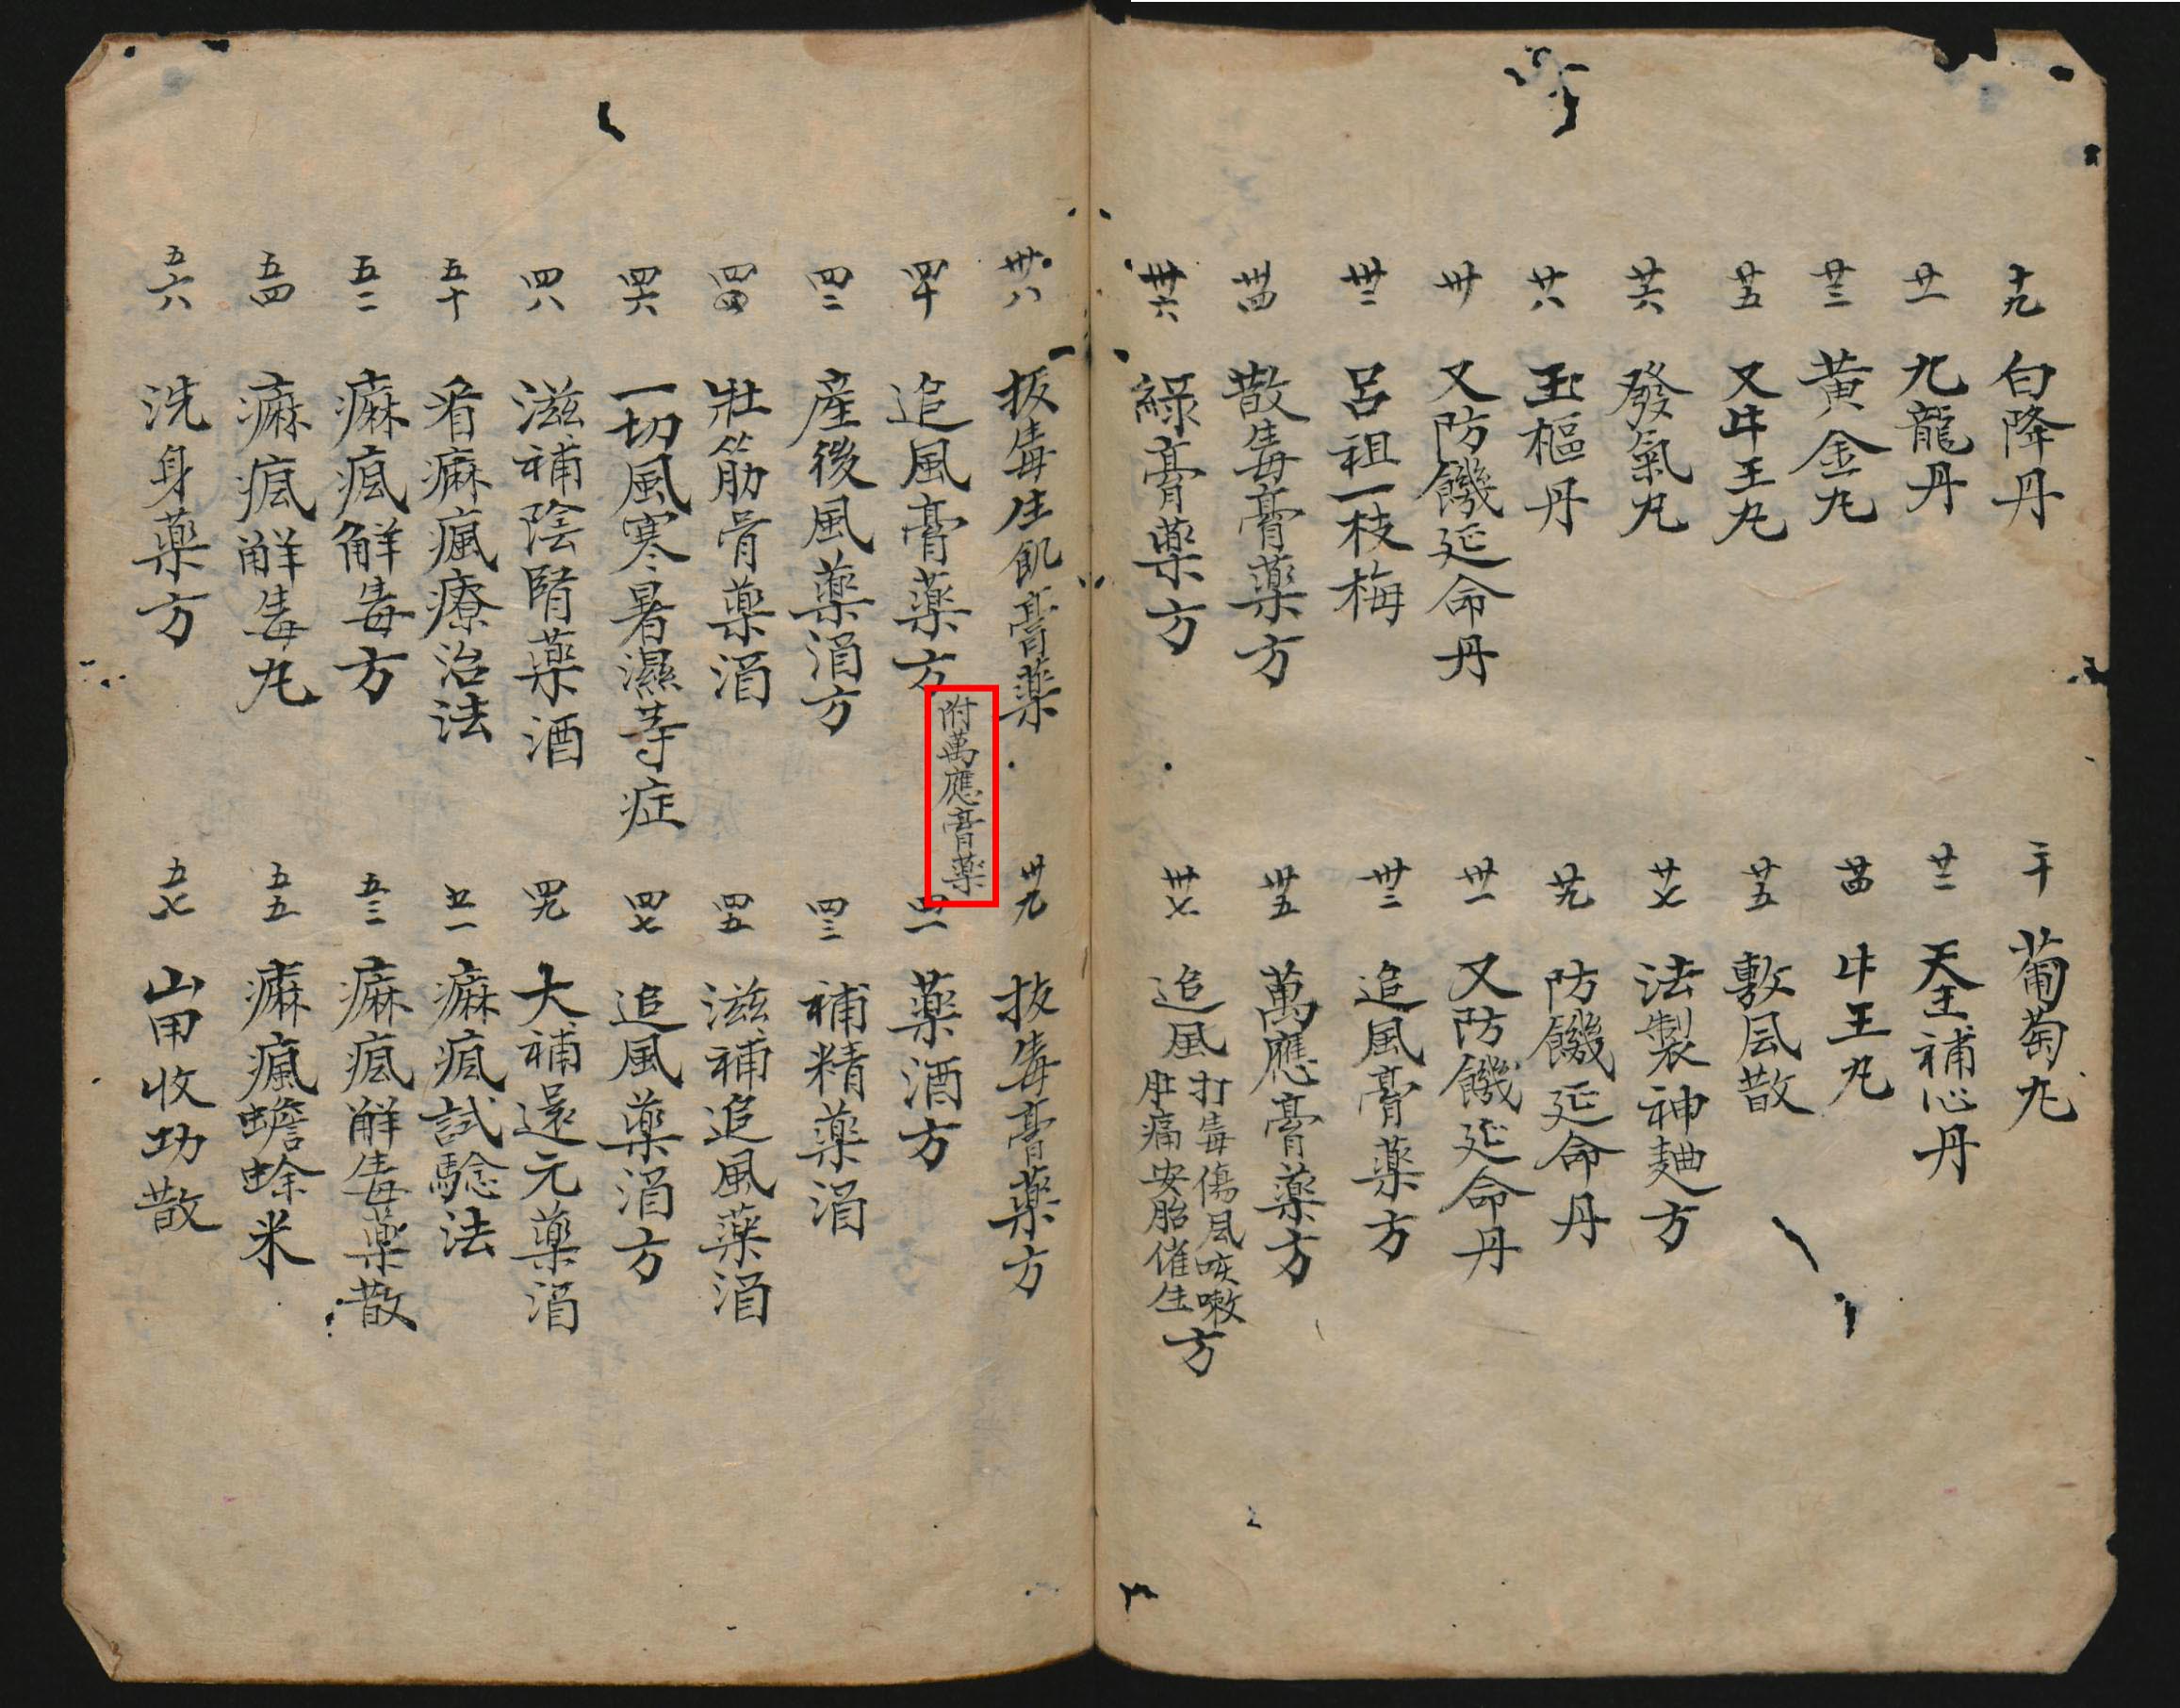 十九 白降丹
二十 葡萄丸
廿一 九龍丹
廿二 天王補心丹
廿三 黃金丸
廿四 牛王丸
廿五 又牛王丸
廿五 敷风散
廿六 發氣丸
廿七 法製神麯方
廿八 玉樞丹
廿九 防饑延命丹
卅 又防饑延命丹
卅一 又防饑延命丹
卅二 呂祖一枝梅
卅三 追風膏藥方
卅四 散毒膏藥方
卅五 萬應膏藥方
卅六 綠膏藥方
卅七 追風打毒傷风咳嗽肚痛安胎催生方
卅八 拔毒生肌膏薬
卅九 拔毒膏薬方
四十 追風膏藥方 附萬應膏藥
四一 薬酒方
四二 產後風藥酒方
四三 補精薬酒
四四 壯筋骨藥酒
四五 滋補追風藥酒
四六 一切風寒暑濕等症
四七 追風藥酒方
四八 滋補陰腎藥酒
四九 大補還元藥酒
五十 看痳瘋療治法
五一 痳疯試驗法
五二 痳疯解毒方
五三 痳疯解毒藥散
五四 痳疯解毒丸
五五 痳瘋蟾蜍米
五六 洗身藥方
五七 收功散